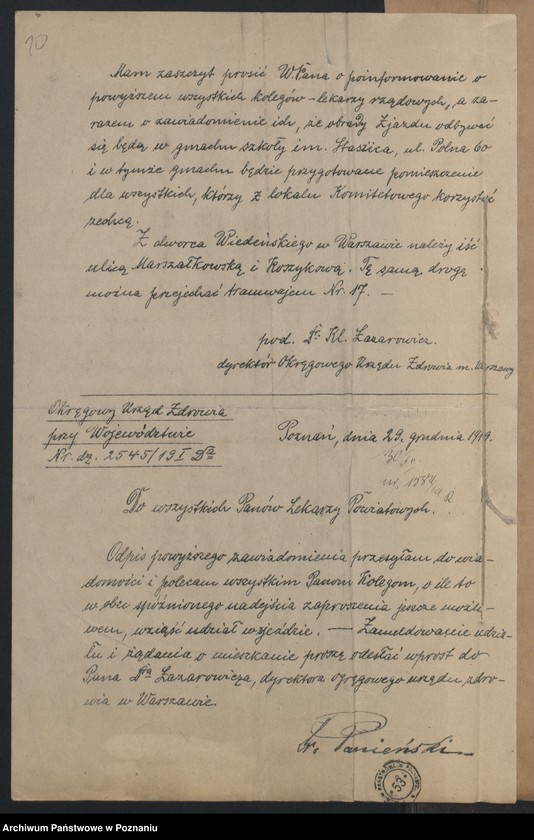 10
Mam zaszczyt prosić WPana o poinformowanie o
powyższem wszystkich kolegów-lekarzy rządowych, a za-
razem o zawiadomienie ich, że obrady Zjazdu odbywać
się będą w gmachu szkoły im. Staszica, ul. Polna 60
i w tymże gmachu będzie przygotowane pomieszczenie
dla wszystkich, którzy z lokalu Komitetowego korzystać
zechcą.
Z dworca Wiedeńskiego w Warszawie należy iść
ulicą Marszałkowską i Koszykową. Tę samą drogę
można przejechać tramwajem Nr. 17. —
pod. Dr. Kl. Łazarowicz.
dyrektór Okręgowego Urzędu Zdrowia m. Warszawy
Okręgowy Urząd Zdrowia
przy Województwie
Nr. dz. 2545/19 I
Poznań, dnia 29. grudnia 1919.
nr.
Do wszystkich Panów Lekarzy Powiatowych.
Odpis powyższego zawiadomienia przesyłam do wia-
domości i polecam wszystkim Panom Kolegom, o ile to
w obec spóźnionego nadejścia zaproszenia jeszcze możli-
wem, wziąść udział w zjeździe. — Zameldowanie udzia-
łu i żądania o mieszkanie proszę odesłać wprost do
Pana Dra Łazarowicza, dyrektora ogręgowego urzędu zdro-
wia w Warszawie.
Dr. Panieński
53
Archiwum Państwowe w Poznaniu